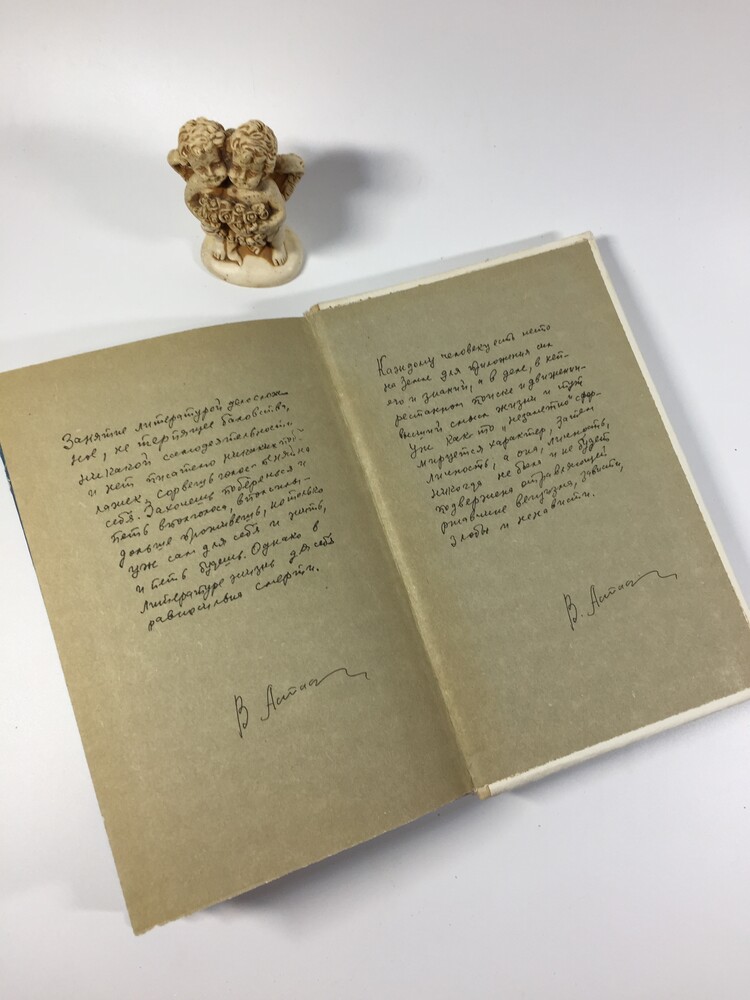 Занятие литературой дело слож-
ное, не терпящее баловства,
никакой самодеятельности
и нет писателю никаких поб-
лажек. Сорвешь голос - пеняй на
себя. Захочешь поберечься и
петь вполголоса, вполсилы, -
дольше проживешь, но только
уж сам для себя и жить,
и петь будешь. Однако в
литературе жизнь для себя
равносильна смерти.
В Астаф
Каждому человеку есть место
на земле для приложения сил
его и знаний, а в деле, в неп-
рестанном поиске и движении -
высший смысл жизни и тут
уж как-то "незаметно" фор-
мируется характер, затем
личность, а она, личность,
никогда не была и не будет
подвержена отравляющей
ржавчине вещизма, зависти,
злобы и ненависти.
В. Астаф